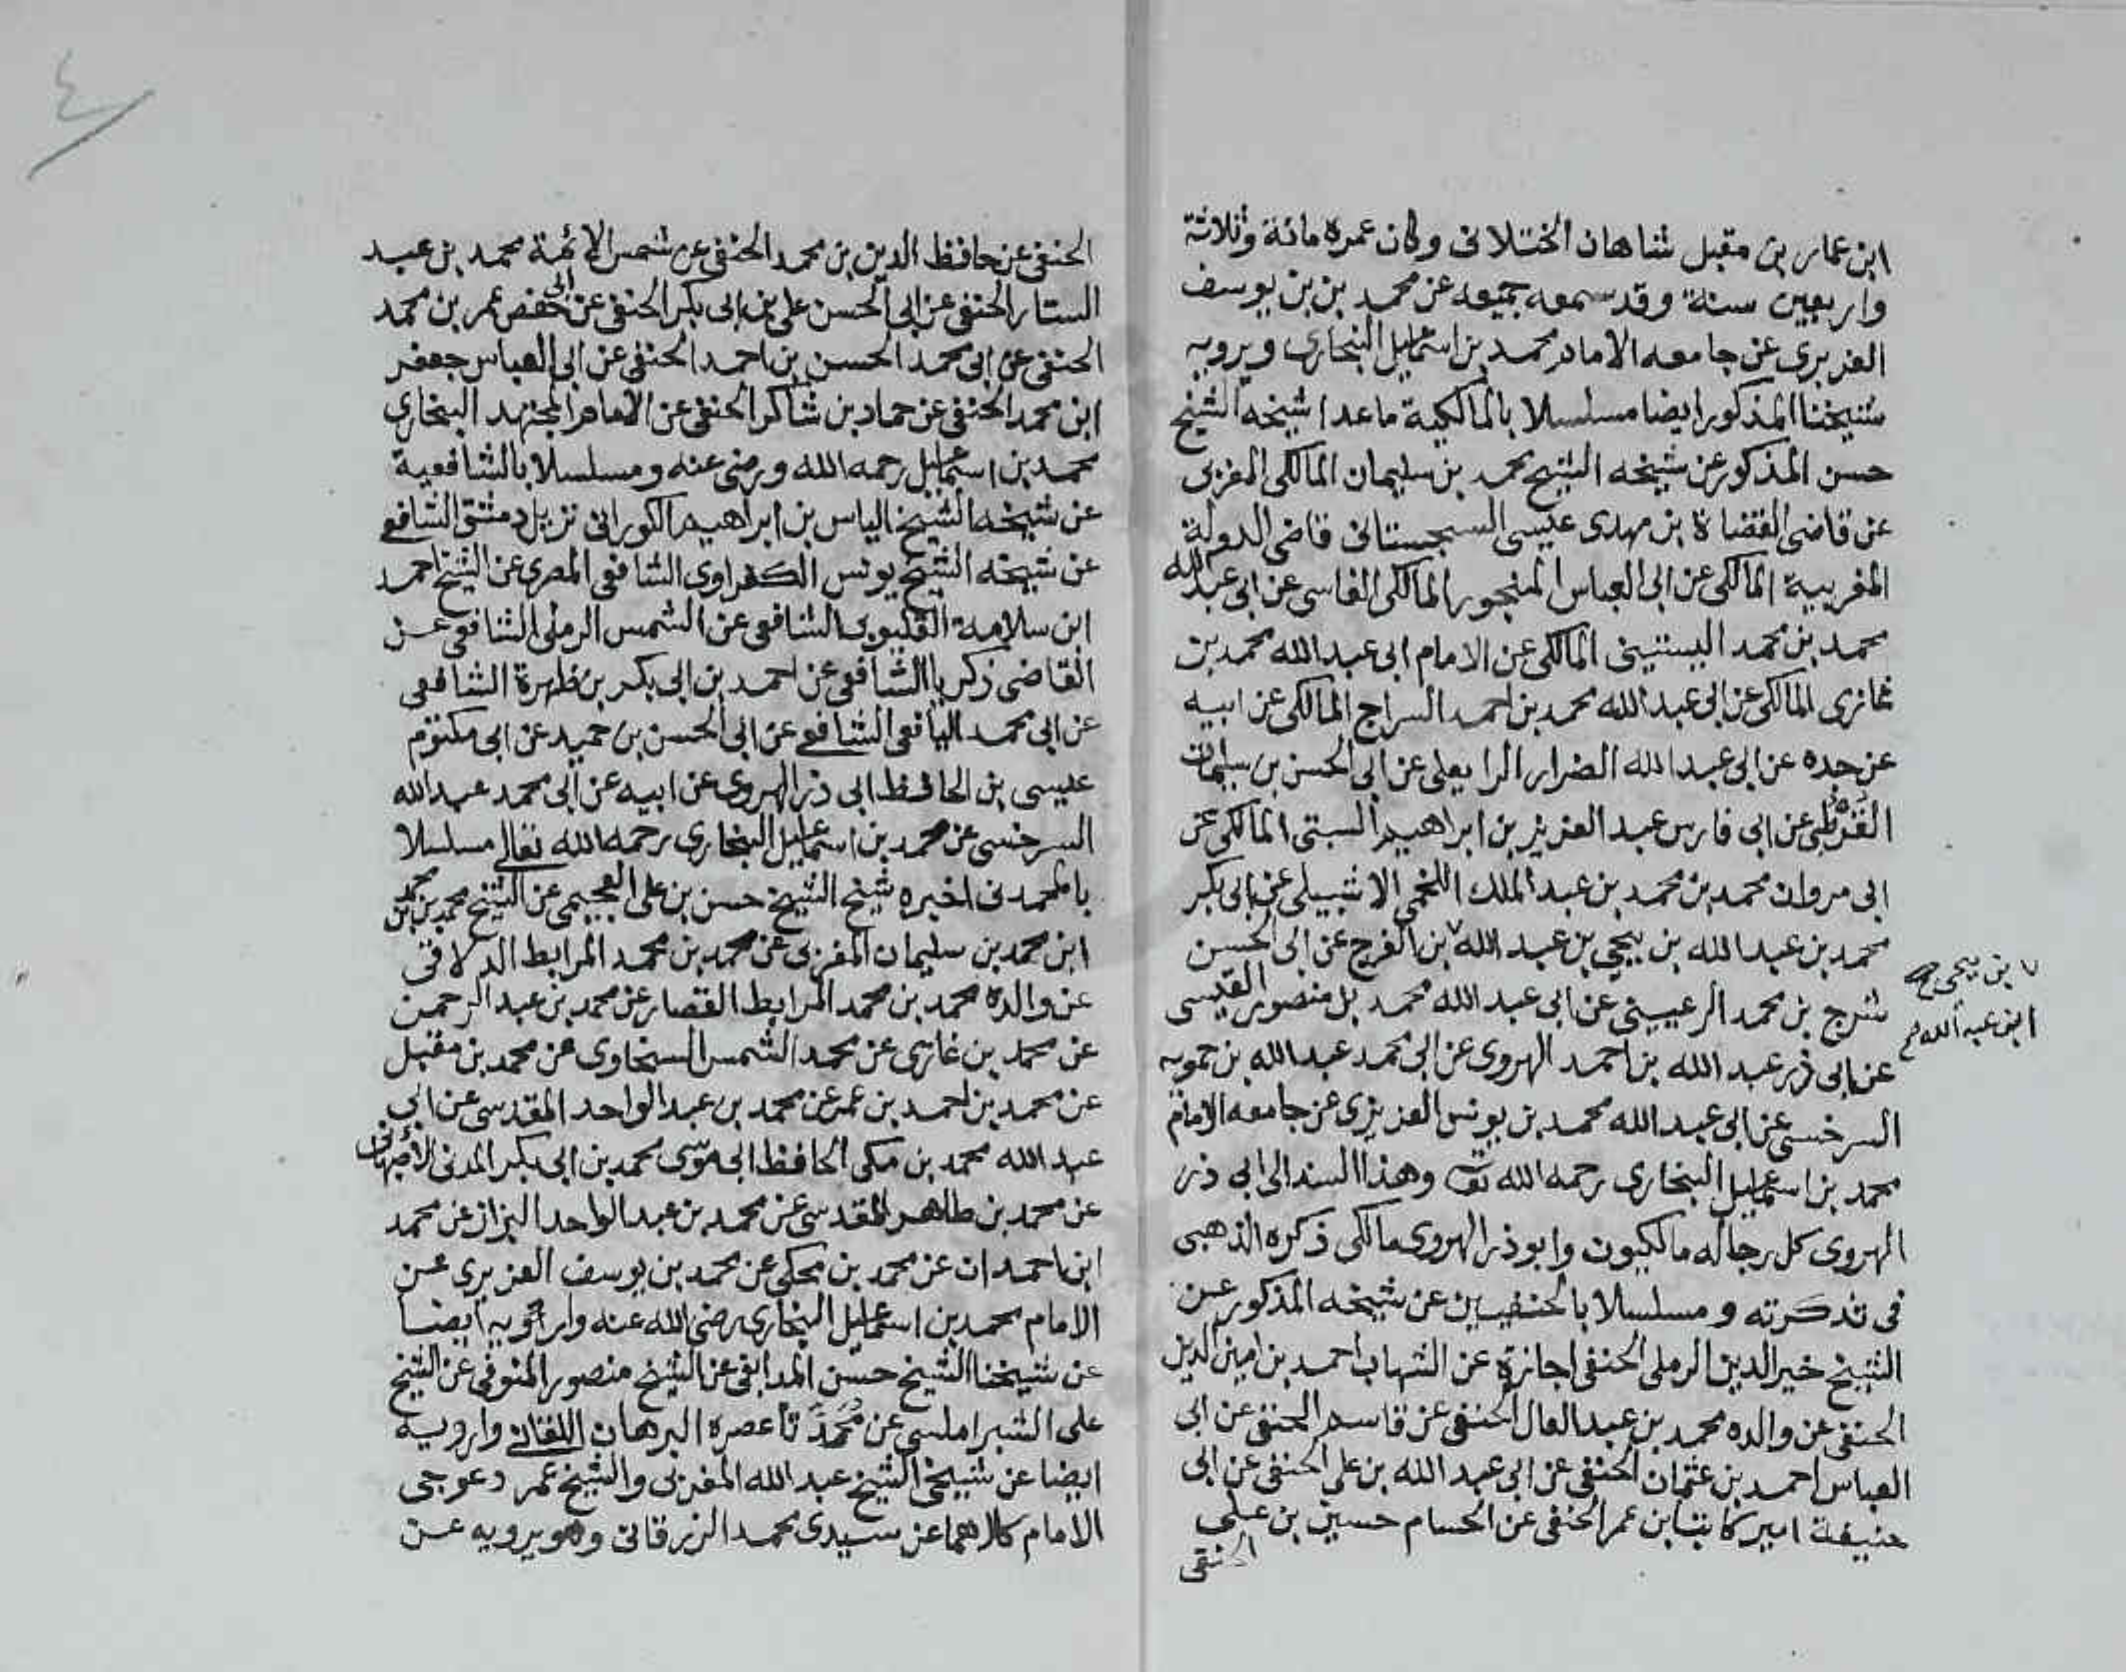 ابن عمار بن مقبل شاهان الختلانى وكان عمره مائة وثلاثة
واربعين سنة وقد سمعه جميعه عن محمد بن بن يوسف
الفربرى عن جامعه الامام محمد بن اسماعيل البخارى ويرويه
شيخنا المذكور ايضا مسلسلا بالمالكية ما عدا شيخه الشيخ
حسن المذكور عن شيخه الشيخ محمد بن سليمان المالكى المغربى
عن قاضى القضاة بن مهدى عيسى السجستانى قاضى الدولة
المغربية المالكى عن ابى العباس المنجور المالكى الفاسى عن ابى عبد الله
محمد بن محمد اليستيني المالكى عن الامام ابى عبد الله محمد بن
غازى المالكى عن ابى عبد الله محمد بن احمد السراج المالكى عن ابيه
عن جده عن ابى عبد الله الضرار الرا يعلى عن ابى الحسن بن سليمان
القرطبى عن ابى فارس عبد العزيز بن ابراهيم السبتى المالكى عن
ابى مروان محمد بن محمد بن عبد الملك اللخمى الاشبيلى عن ابى بكر
محمد بن عبد الله بن يحيى بن عبد الله ٧ بن الفرج عن ابى الحسن
٧ بن يحيى صح
ابن عبد الله
شرج بن محمد الرعينى عن ابى عبد الله محمد بل منصور القيسى
عن ابى ذر عبد الله بن احمد الهروى عن ابى محمد عبد الله بن حمويه
السرخسى عن ابى عبد الله محمد بن يونس الفربرى عن جامعه الامام
محمد بن اسماعيل البخارى رحمه الله تعـ وهذا السند الى ابى ذر
الهروى كل رجاله مالكيون وابو ذر الهروى مالكى ذكره الذهبى
فى تذكرته ومسلسلا بالحنفيين عن شيخه المذكور عن
الشيخ خير الدين الرملى الحنفى اجازة عن الشهاب احمد بن امين الدين
الحنفى عن والده محمد بن عبد العال الحنفى عن قاسم الحنفى عن ابى
العباس احمد بن عثمان الحنفى عن ابى عبد الله بن على الحنفى عن ابى
حنيفة امير كاتب ابن عمر الحنفى عن الحسام حسين بن على
الحنفى
٤
الحنفى عن حافظ الدين بن محمد الحنفى عن شمس الائمة محمد بن عبد
الستار الحنفى عن ابى الحسن على بن ابى بكر الحنفى عن ابى حفص عمر بن محمد
الحنفى عن ابى محمد الحسن بن احمد الحنفى عن ابى العباس جعفر
ابن محمد الحنفى عن حماد بن شاكر الحنفى عن الامام المجتهد البخارى
محمد بن اسماعيل رحمه الله ورضى عنه ومسلسلا بالشافعية
عن شيخه الشيخ الياس بن ابراهيم الكورانى نزيل دمشق الشافعى
عن شيخه الشيخ يونس الكفراوى الشافعى المصرى عن الشيخ احمد
ابن سلامة القليوبى الشافعى عن الشمس الرملى الشافعى عن
القاضى زكريا الشافعى عن احمد بن ابى بكر بن ظهيرة الشافعى
عن ابى محمد اليافعى الشافعى عن ابى الحسن بن حميد عن ابى مكتوم
عيسى بن الحافظ ابى ذر الهروى عن ابيه عن ابى محمد عبد الله
السرخسى عن محمد بن اسماعيل البخارى رحمه الله تعالى مسلسلا
با لمحمدى اخبره شيخ الشيخ حسن بن على العجيمى عن الشيخ محمد بن محمد
ابن محمد بن سليمان المغربى عن محمد بن محمد المرابط الدلائى
عن والده محمد بن محمد المرابط القصار عن محمد بن عبد الرحمن
عن محمد بن غازى عن محمد الشمس السخاوى عن محمد بن مقبل
عن محمد بن احمد بن عمر عن محمد بن عبد الواحد المقدسى عن ابى
عبد الله محمد بن مكى الحافظ ابى موسى محمد بن ابى بكر المدنى الاصبهانى
عن محمد بن طاهر المقدسى عن محمد بن عبد الواحد البزاز عن محمد
ابن احمد ان عن محمد بن مكى عن محمد بن يوسف الفربرى عن
الامام محمد بن اسماعيل البخارى رضى الله عنه وارويه ايضا
عن شيخنا الشيخ حسن المدابغى عن الشيخ منصور المنوفى عن الشيخ
على الشبراملسى عن محمد تا عصره البرهان اللقانى وارويه
ايضا عن شيخى الشيخ عبد الله المغربى والشيخ عمر دعوجى
الامام كلاهما عن سيدى محمد الزرقانى وهو يرويه عن